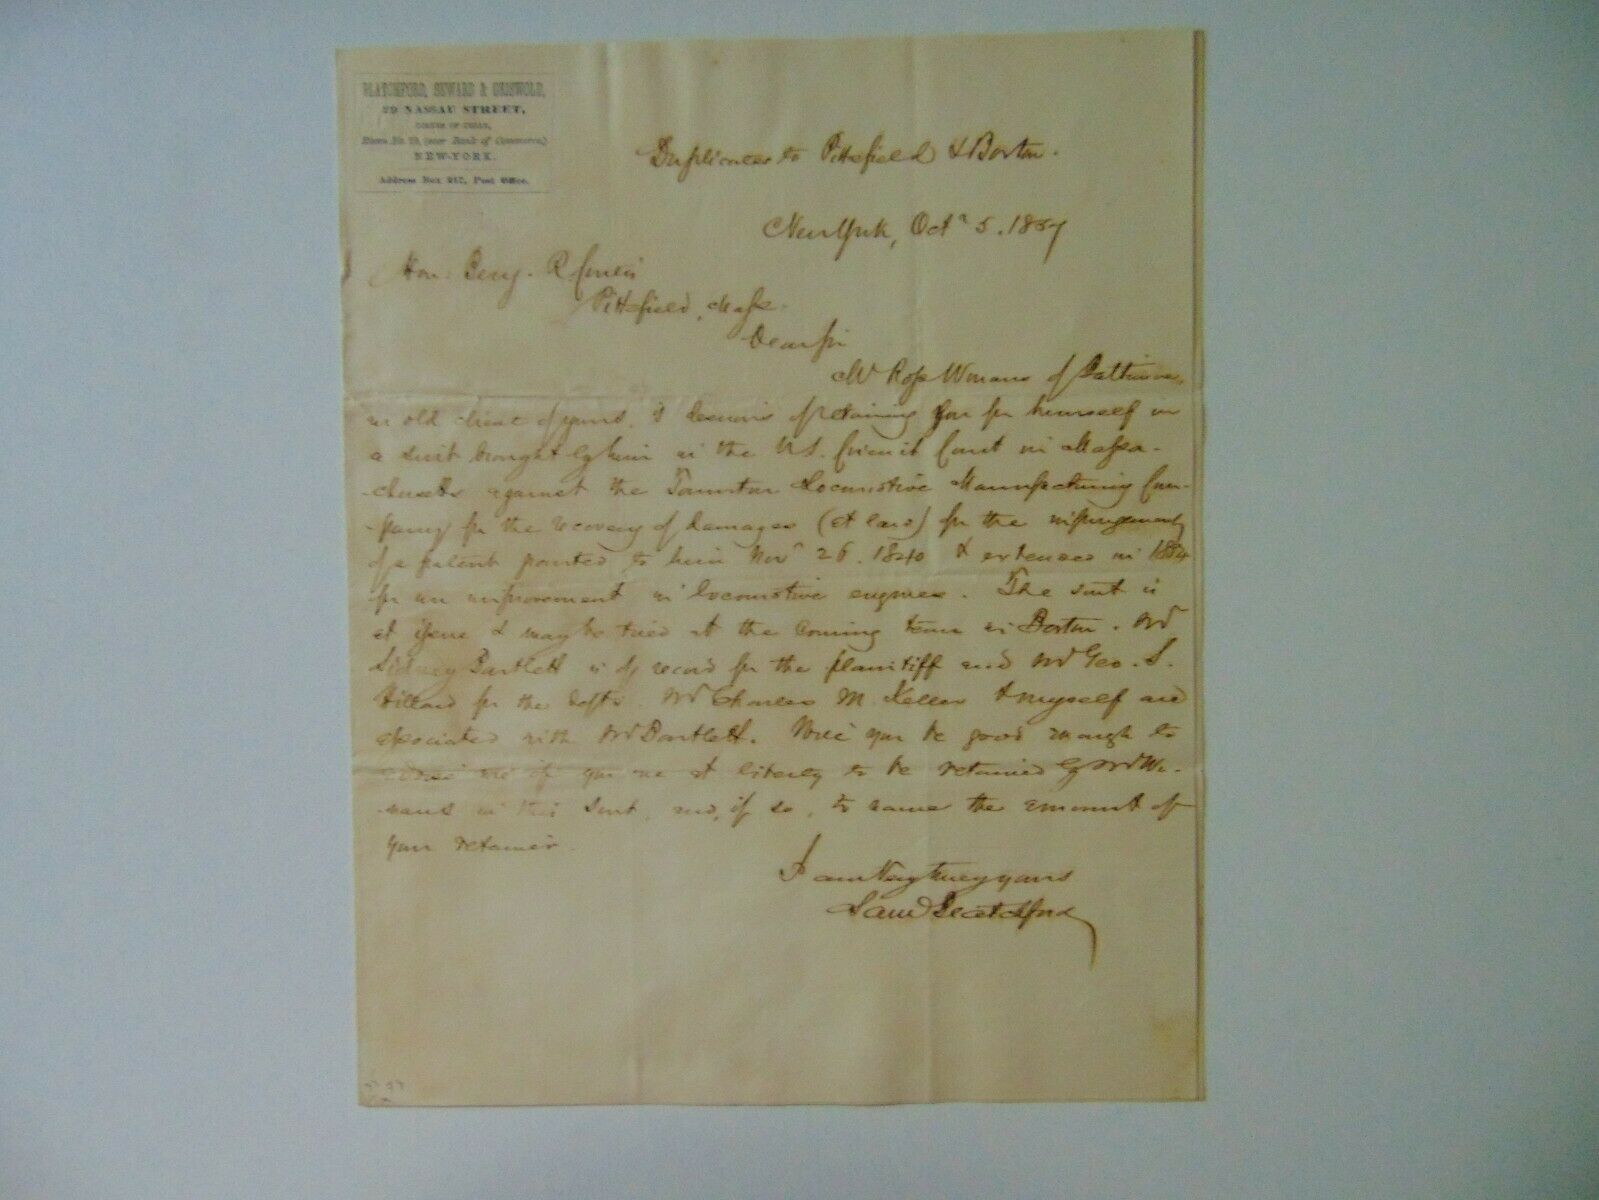 BLATCHFORD, SEWARD & GRISWOLD,
29 NASSAU STREET,
CORNER OF CEDAR,
Room No. (over Bank of Commerce)
NEW-YORK.
Address Box 217, Post Office.
Duplicates to Pittsfield & Boston.
New York, Octr 5. 1857
Hon. Benj. R Curtis
Pittsfield, Mass.
Dear sir
Mr Ross Winans of Baltimore,
an old client of yours, is desirous of retaining you for himself in
a suit brought by him in the U.S. Circuit Court in Massa-
-chusetts against the Taunton Locomotive Manufacturing Com-
-pany for the recovery of damages (at law) for the infringement
of a patent granted to him Novr 26. 1840 & extended in 1854
for an improvement in locomotive engines. The suit is
at issue & may be tried at the coming term in Boston. Mr
Sidney Bartlett is of record for the plaintiff and Mr Geo. S.
Hillard for the defts. Mr Charles M. Keller & myself are
associated with Mr Bartlett. Will you be good enough to
advise me if you are at liberty to be retained by Mr Wi-
-nans in this suit, and, if so, to name the amount of
your retainer.
I am Very truly yours
Saml Blatchford